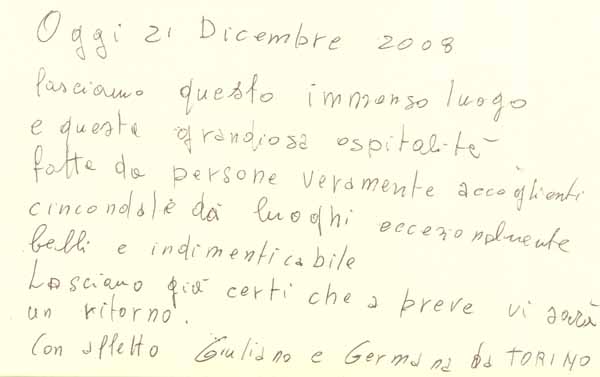 Oggi 21 Dicembre 2008
lasciamo questo immenso luogo
e questa grandiosa ospitalità
fatta da persone veramente accoglienti
cincondale da luoghi eccezionalmente
belli e indimenticabile
Lasciamo già certi che a breve vi sarà
un ritorno.
Con affetto Giuliano e Germana da TORINO